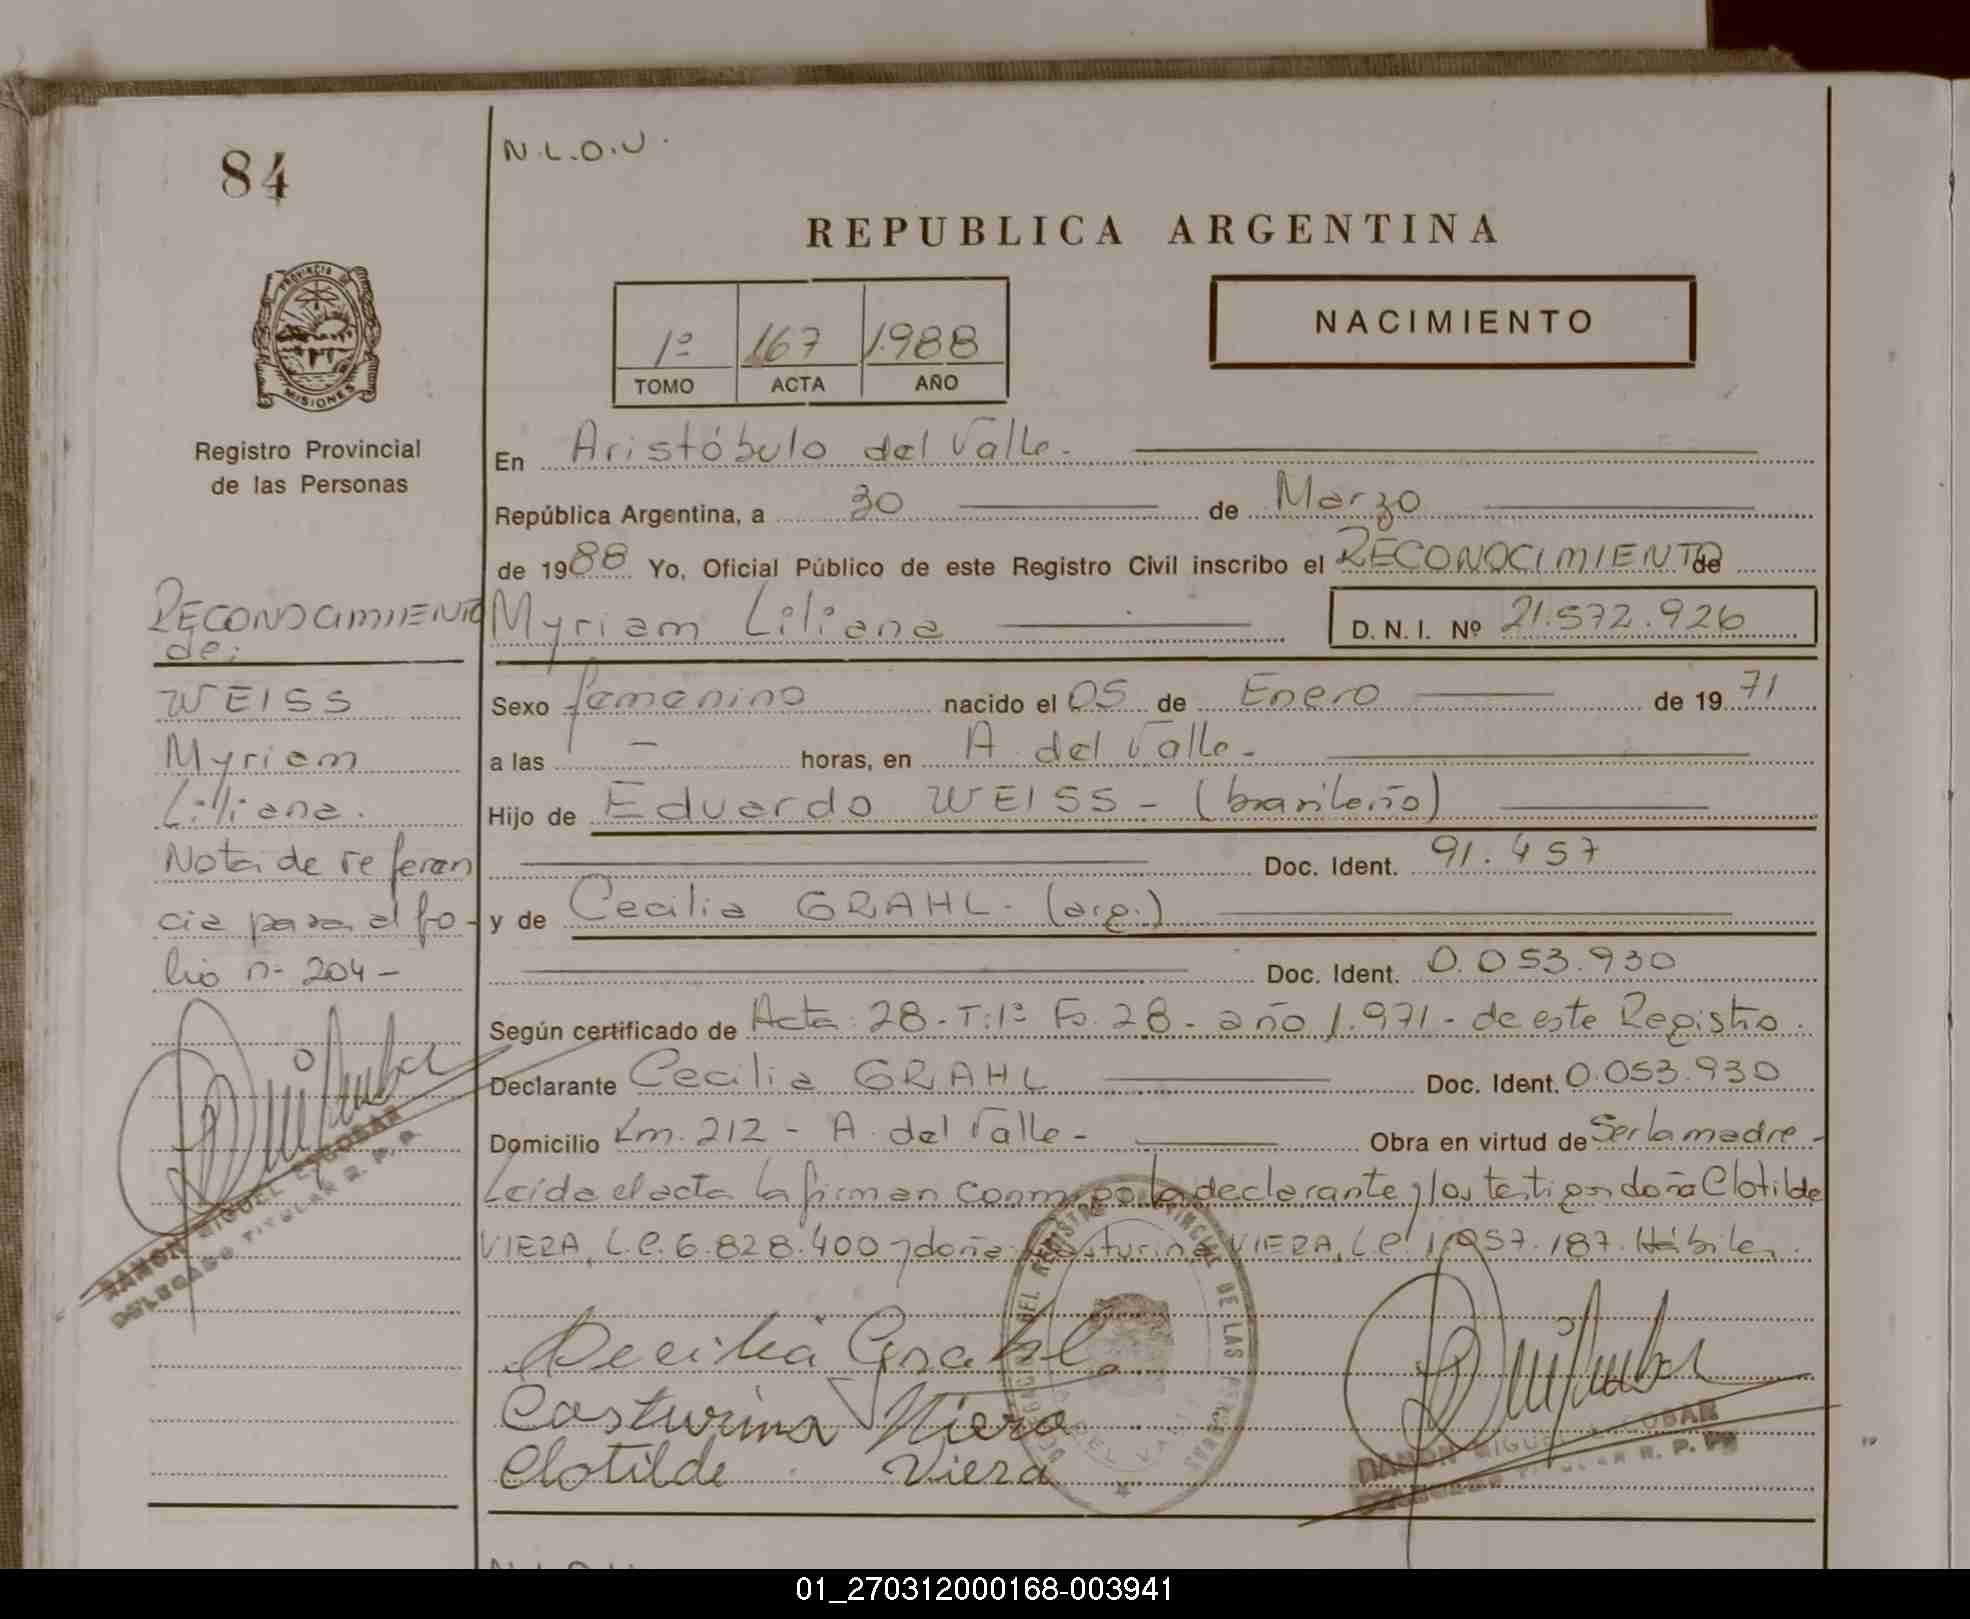 84
N.L.O.U.
REPUBLICA ARGENTINA
PROVINCIA DE
MISIONES
1º 167 1.988
TOMO ACTA AÑO
NACIMIENTO
Registro Provincial
de las Personas
En Aristóbulo del Valle.
República Argentina, a 30 de Marzo
de 1988 Yo, Oficial Público de este Registro Civil inscribo el RECONOCIMIENTO de
Myriam Liliana D. N. I. Nº 21.572.926
Sexo femenino nacido el 05 de Enero de 1971
a las - horas, en A. del Valle -
Hijo de Eduardo WEISS - (brasileño)
Doc. Ident. 91.457
y de Cecilia GRAHL - (arg.)
Doc. Ident. 0.053.930
Según certificado de Acta: 28 - T: 1º Fo. 28 - año 1.971 - de este Registro.
Declarante Cecilia GRAHL Doc. Ident. 0.053.930
Domicilio Km. 212 - A. del Valle - Obra en virtud de Ser la madre -
Leída el acta la firman conmigo la declarante y los testigos doña Clotilde
VIERA, L.C. 6.828.400 y doña Casturina VIERA, L.C. 1.957.187. Hábiles.
Cecilia Grahl
Casturina Viera
Clotilde Viera
RECONOCIMIENTO
de:
WEISS
Myriam
Liliana.
Nota de referen
cia para el fo-
lio n- 204 -
RAMON MIGUEL ESCOBAR
DELEGADO TITULAR R. P. P.
DEL REGISTRO PROVINCIAL DE LAS PERSONAS
DEL VALLE
RAMON MIGUEL ESCOBAR
DELEGADO TITULAR R. P. P.
01_270312000168-003941